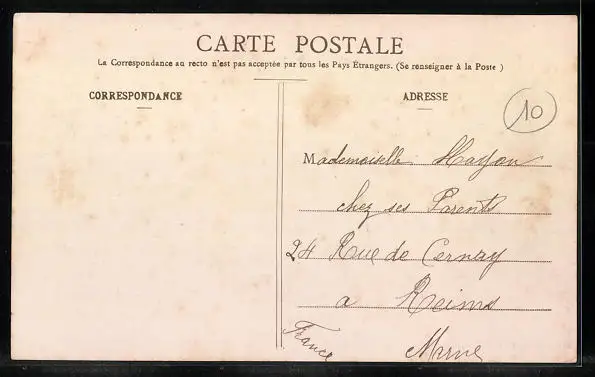 CARTE POSTALE
La Correspondance au recto n'est pas acceptée par tous les Pays Étrangers. (Se renseigner à la Poste )
CORRESPONDANCE
ADRESSE
10
Mademoiselle Hayon
chez ses Parents
24 Rue de Cernay
a Reims
France
Marne